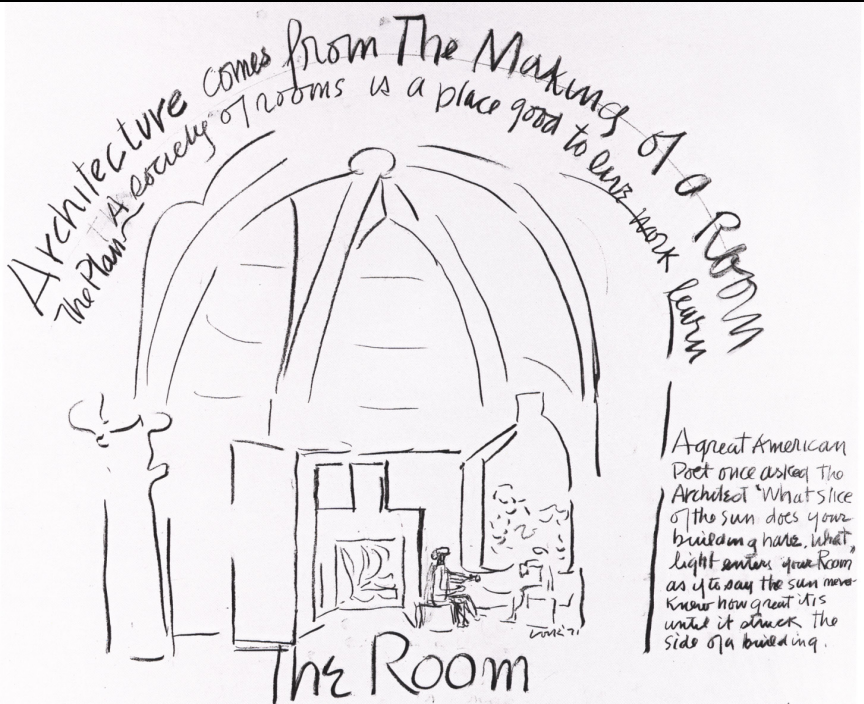 Architecture comes from The Making of a Room
The Plan A society of rooms is a place good to live work learn
A great American
Poet once asked the
Architect 'What slice
of the sun does your
building have. What
light enters your Room"
as if to say the sun never
knew how great it is
until it struck the
side of a building.
The Room